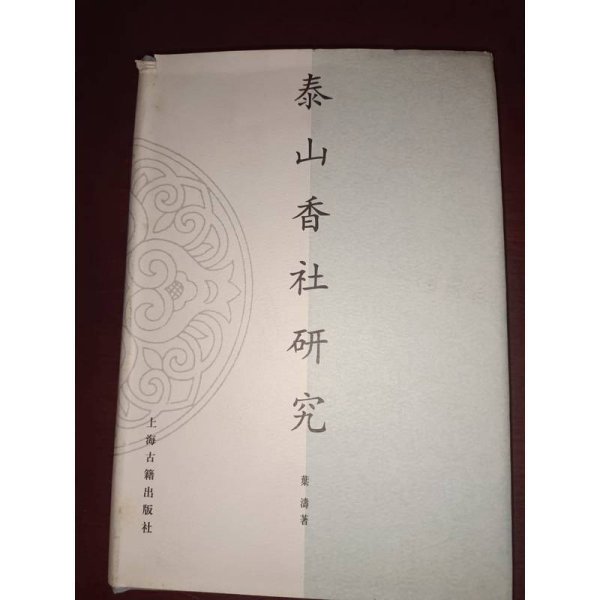 泰山香社研究
葉濤著
上海古籍出版社